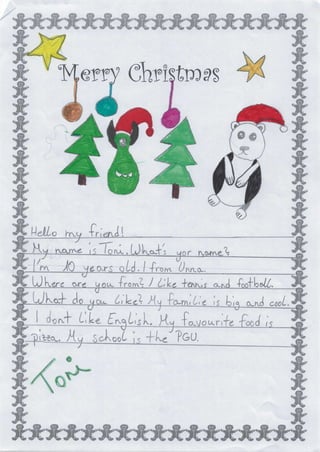 Merry Christmas
Hello my friend!
My name is Toni. What's yor name?
I'm 10 years old. I from Unna.
Where are you from? I like tennis and football.
What do you like? My familie is big and cool.
I dont like English. My favourite food is
pizza. My school is the PGU.
Toni